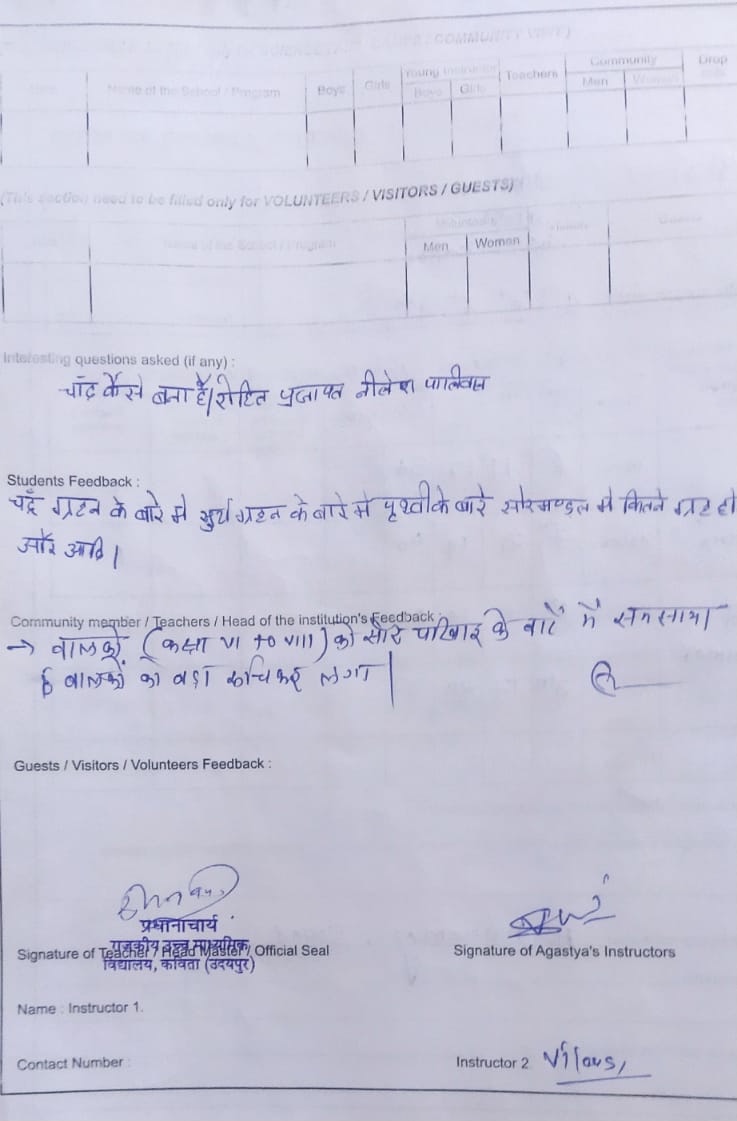 COMMUNITY VISIT)
Name of the School / Program Boys Girls Young Instructor Teachers Community Drop
Boys Girls Men Women
(This section need to be filled only for VOLUNTEERS / VISITORS / GUESTS)
Name of the School / Program Volunteers
Men Women
Interesting questions asked (if any) :
चाँद कैसे बना है/रोहित प्रजापत नीलेश पालीवाल
Students Feedback :
चद्रँ ग्रहन के बारे मे सुर्य ग्रहन के बारे मे पृथ्वी के बारे सोरमण्डल मे कितने ग्रह हो
ओर आदि।
Community member / Teachers / Head of the institution's Feedback :
→ बालकों (कक्षा VI to VIII) को सौर के बारें में समझाया
बालकों को बड़ा लगा|
Guests / Visitors / Volunteers Feedback :
प्रधानाचार्य
राजकीय उच्च माध्यमिक
Signature of Teacher / Head Master / Official Seal Signature of Agastya's Instructors
विद्यालय, कविता (उदयपुर)
Name : Instructor 1.
Contact Number : Instructor 2